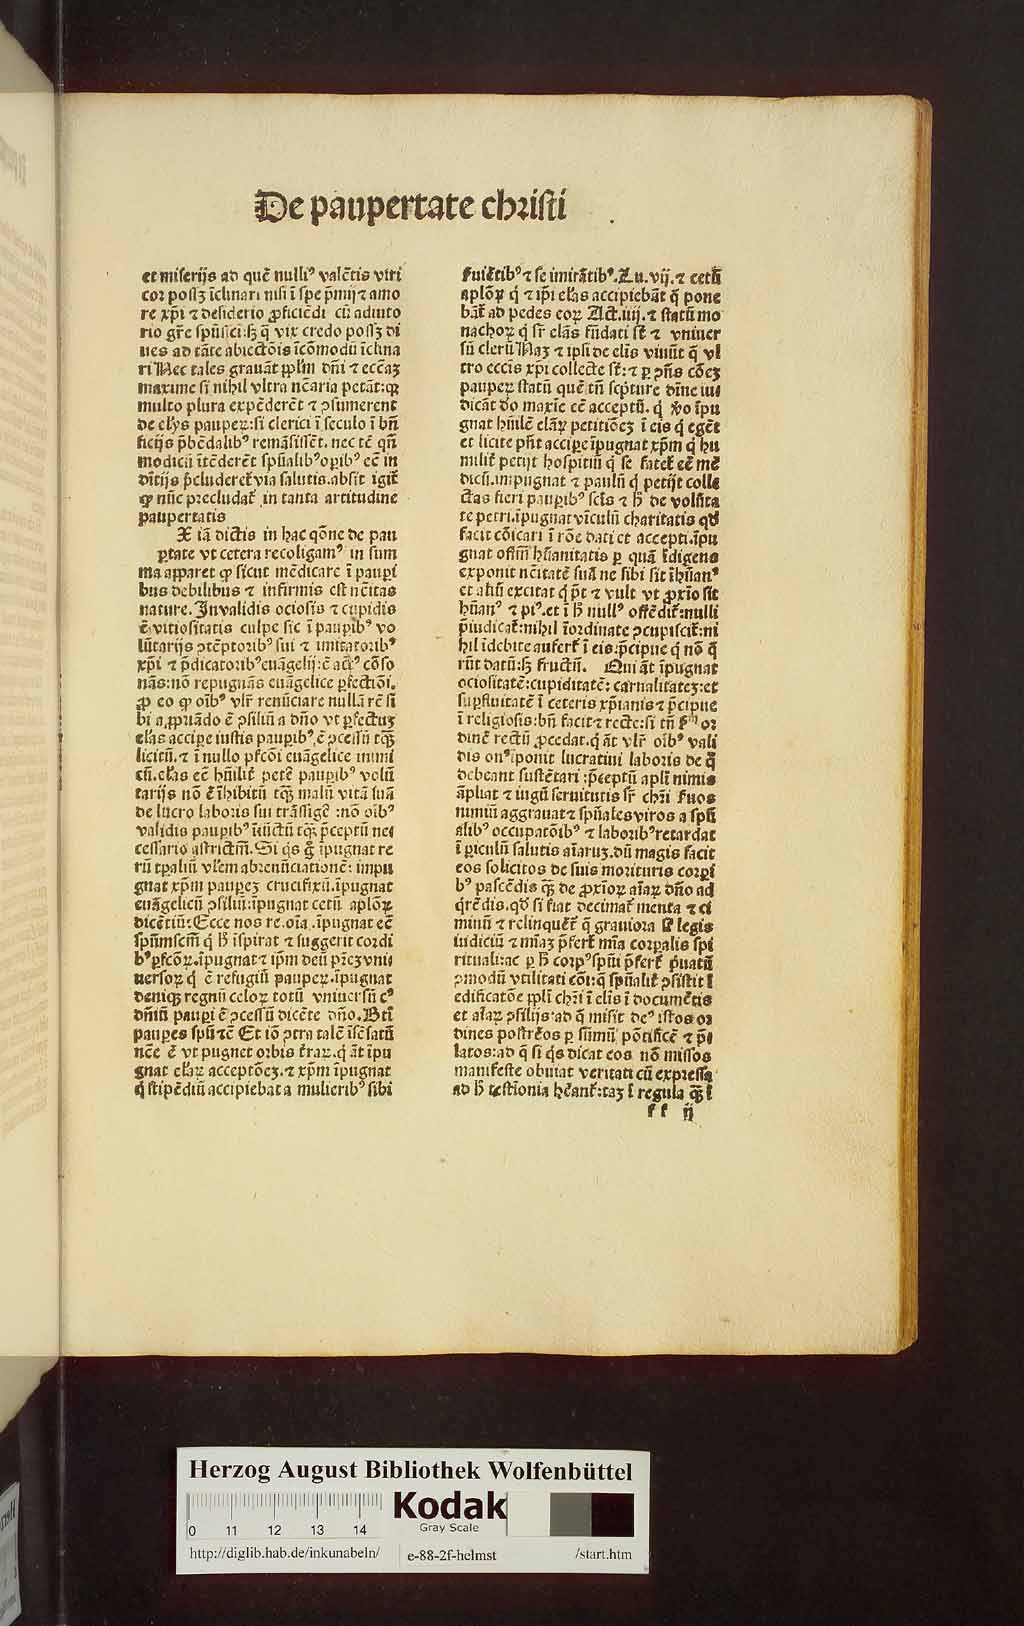 De paupertate christi
et miserijs ad quē nulli⁹ valētis viri
cor possꝫ īclinari nisi ī spe p̄mij ⁊ amo
re xp̄i ⁊ desiderio ꝓficiēdi cū adiuto
rio gr̄e spūs sci: sꝫ q̄ vix credo possꝫ di
ues ad tāte abiectōis īcōmodū īclina
ri Nec tales grauāt ppl̄m dn̄i ⁊ ecc̄az
maxime si nihil vltra nc̄aria petāt: qꝛ
multo plura expēderēt ⁊ ꝯsumerent
de elys pauperꝝ: si clerici ī seculo ī bn̄
ficijs p̄bēdalib⁹ remāsissēt. nec tē qn̄
modicū ītēderēt spūalib⁹ oꝑib⁹ eē in
dītijs p̄cluderet via salutis. absit igit̄
ꝙ nūc precludat̄ in tanta artitudine
paupertatis
X iā dictis in hac qōne de pau
ꝑtate vt cetera recoligam⁹ in sum
ma apparet ꝙ sicut mēdicare ī pauꝑi
bus debilibus ⁊ infirmis est nc̄itas
nature. Invalidis ociosis ⁊ cupidis
ē vitiositatis culpe sic ī pauꝑib⁹ vo
lūtarijs ꝯtēptorib⁹ sui ⁊ imitatorib⁹
xp̄i ⁊ p̄dicatorib⁹ euāgelij: ē act⁹ cōso
nās: nō repugnās euāgelice ꝑfectiōi.
ꝓ eo ꝙ oīb⁹ vlr̄ renūciare nullā rē si
bi a,ꝓpriādo ē ꝯsiliū a dn̄o vt ꝑfectuꝫ
elās acciꝑe iustis pauꝑib⁹ ē ꝯcessū tqꝫ̄
licitū. ⁊ ī nullo ꝑfcōi euāgelice inimi
cū. elās eē hūilit̄ petē pauꝑib⁹ volū
tarijs nō ē īhibitū tqꝫ̄ malū vitā suā
de lucro laboris sui trāssigē: nō oīb⁹
validis pauꝑib⁹ īiūctū tqꝫ̄ p̄ceptū ne
cessario astrictm̄. Si qs g̃ īpugnat re
rū tꝑaliū vl̄em abrenūciationē: impu
gnat xp̄m pauperꝫ crucifixū. īpugnat
euāgelicū ꝯsiliū: īpugnat cetū aplōꝝ
dicētiū: Ecce nos re. oīa. īpugnat eē
spūmscm̄ q̇ h̄ īspirat ⁊ suggerit cordi
b⁹ ꝑfcōꝝ. īpugnat ⁊ ip̄m deū pr̄eꝫ vni
uersoꝝ q̇ ē refugiū pauperꝝ. īpugnat
deniqꝫ regnū celoꝝ totū vniuersū c⁹
dn̄iū pauꝑi ē ꝯcessū dicēte dn̄o. Btī
pauꝑes spū ⁊cē Et iō ꝯtra talē īsēsatū
nc̄e ē vt pugnet orbis t̄raꝝ. q̇ āt īpu
gnat elaꝝ acceptōeꝫ. ⁊ xp̄m īpugnat
q̇ stipēdiū accipiebat a mulierib⁹ sibi
fuiētib⁹ ⁊ se imitātib⁹. Lu. vij. ⁊ cetū
aplōꝝ q̇ ⁊ ip̄i elās accipiebāt q̄ pone
bāt̄ ad pedes eoꝝ Act. iiij. ⁊ statū mo
nachoꝝ q̇ sr̄ elās fūdati st̄ ⁊ vniuer
sū clerū Naꝫ ⁊ ipsi de elīs viuūt q̄ vl
tro ecc̄īs xp̄i collecte st̄: ⁊ ꝑ ꝯn̄s cōeꝫ
pauperꝝ statū quē tn̄ scpture dīne iu
dicāt do maxīe eē acceptū. q̇ v̊o īpu
gnat hūilē elāꝝ petitiōeꝫ ī eis q̇ egēt
et licite pn̄t acciꝑe īpugnat xp̄m q̇ hu
milit̄ petijt hospitiū q̇ se fatet̄ eē mē
dicū. impugnat ⁊ paulū q̇ petijt colle
ctas fieri pauꝑib⁹ scīs ⁊ h̄ de volūta
te petri. īpugnat vīculū charitatis qđ
facit cōicari ī rōe dati et accepti. īpu
gnat offīm hūanitatis ꝑ quā īdigens
exponit nc̄itatē suā ne sibi sit īhūan⁹
et aliū excitat q̇ pt̄ ⁊ vult vt ꝓxīo sit
hūan⁹ ⁊ pi⁹. et ī h̄ null⁹ offēdit̄: nulli
p̄iudicat̄: nihil īordinate ꝯcupiscit̄: ni
hil īdebite aufert̄ ī eis: p̄cipue q̇ nō q̄
rūt datū: sꝫ fructū. Qui āt īpugnat
ociositatē: cupiditatē: carnalitateꝫ: et
suꝑfluitatē ī ceteris xp̄ianis ⁊ p̄cipue
ī religiosis: bn̄ facit ⁊ recte: si tn̄ or
dinē rectū ꝓcedat. q̇ āt vlr̄ oīb⁹ vali
dis on⁹ īponit lucratiui laboris de q̊
debeant sustētari: p̄ceptū apl̄i nimis
āpliat ⁊ iugū seruitutis sr̄ chr̄i fuos
nimiū aggrauat ⁊ spūales viros a spū
alib⁹ occupatōib⁹ ⁊ laborib⁹ retardat
ī ꝑiculū salutis aīaruꝫ. dū magis facit
eos solicitos de suis morituris corꝑi
b⁹ pascēdis qꝫ̄ de ꝓxīoꝝ aīaꝝ dn̄o ad
q̄rēdis. qđ si fiat decimat̄ menta ⁊ ci
minū ⁊ relinquēt̄ q̄ grauiora st̄ legis
iudiciū ⁊ mīaꝫ p̄fert̄ mīa corꝑalis spi
ritualiꝫac ꝑ h̄ corp⁹ spūi p̄fert̄ p̄uatū
ꝯmodū vtilitati cōi: q̄ spūalit̄ ꝯsistit ī
edificatōe ppl̄i chr̄i ī elīs ī documētis
et aīaꝝ ꝯsilijs: ad q̄ misit de⁹ istos or
dines postrēos ꝑ sūmū pōtificē ⁊ p̄
latos: ad q̄ si q̇s dicat eos nō missos
manifeste obuiat veritati cū expressa
ad h̄ testīonia hēant̄: taꝫ ī regula qꝫ̄ ī
f f ij
Herzog August Bibliothek Wolfenbüttel
Kodak
Gray Scale
0 11 12 13 14
http://diglib.hab.de/inkunabeln/ e-88-2f-helmst /start.htm